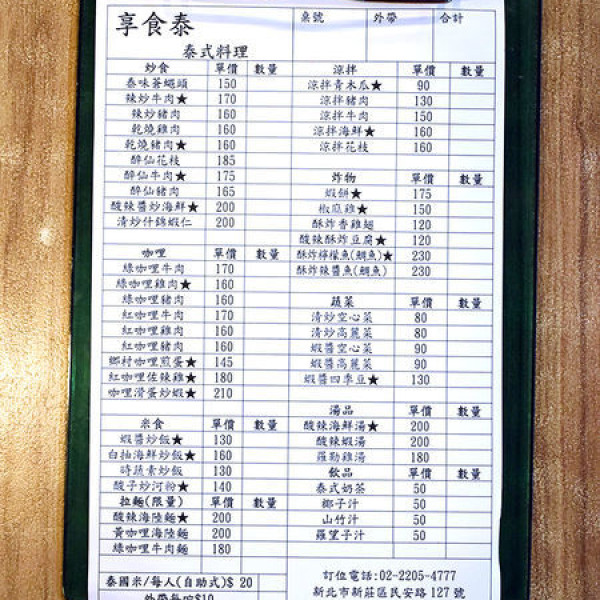 享食泰
泰式料理
桌號 外帶 合計
炒食 單價 數量
泰味蒼蠅頭 150
辣炒牛肉★ 170
辣炒豬肉 160
乾燒雞肉 160
乾燒豬肉★ 160
醉仙花枝 185
醉仙牛肉★ 175
醉仙豬肉 165
酸辣醬炒海鮮★ 200
清炒什錦蝦仁 200
咖哩 單價 數量
綠咖哩牛肉 170
綠咖哩雞肉★ 160
綠咖哩豬肉 160
紅咖哩牛肉 170
紅咖哩雞肉 160
紅咖哩豬肉 160
鄉村咖哩煎蛋★ 145
紅咖哩佐辣雞★ 180
咖哩滑蛋炒蝦★ 210
米食 單價 數量
蝦醬炒飯★ 130
白抽海鮮炒飯★ 160
時蔬素炒飯 130
酸子炒河粉★ 140
拉麵(限量) 單價 數量
酸辣海陸麵★ 200
黃咖哩海陸麵 200
綠咖哩牛肉麵 180
泰國米/每人(自助式)$ 20
外帶每碗$10
涼拌 單價 數量
涼拌青木瓜★ 90
涼拌豬肉 130
涼拌牛肉 150
涼拌海鮮★ 160
涼拌花枝 160
炸物 單價 數量
蝦餅★ 175
椒麻雞★ 150
酥炸香雞翅 120
酸辣酥炸豆腐★ 120
酥炸檸檬魚(鯛魚)★ 230
酥炸辣醬魚(鯛魚) 230
蔬菜 單價 數量
清炒空心菜 80
清炒高麗菜 80
蝦醬空心菜 90
蝦醬高麗菜 90
蝦醬四季豆★ 130
湯品 單價 數量
酸辣海鮮湯★ 200
酸辣蝦湯 200
羅勒雞湯 180
飲品 單價 數量
泰式奶茶 50
椰子汁 50
山竹汁 50
羅望子汁 50
訂位電話:02-2205-4777
新北市新莊區民安路127號